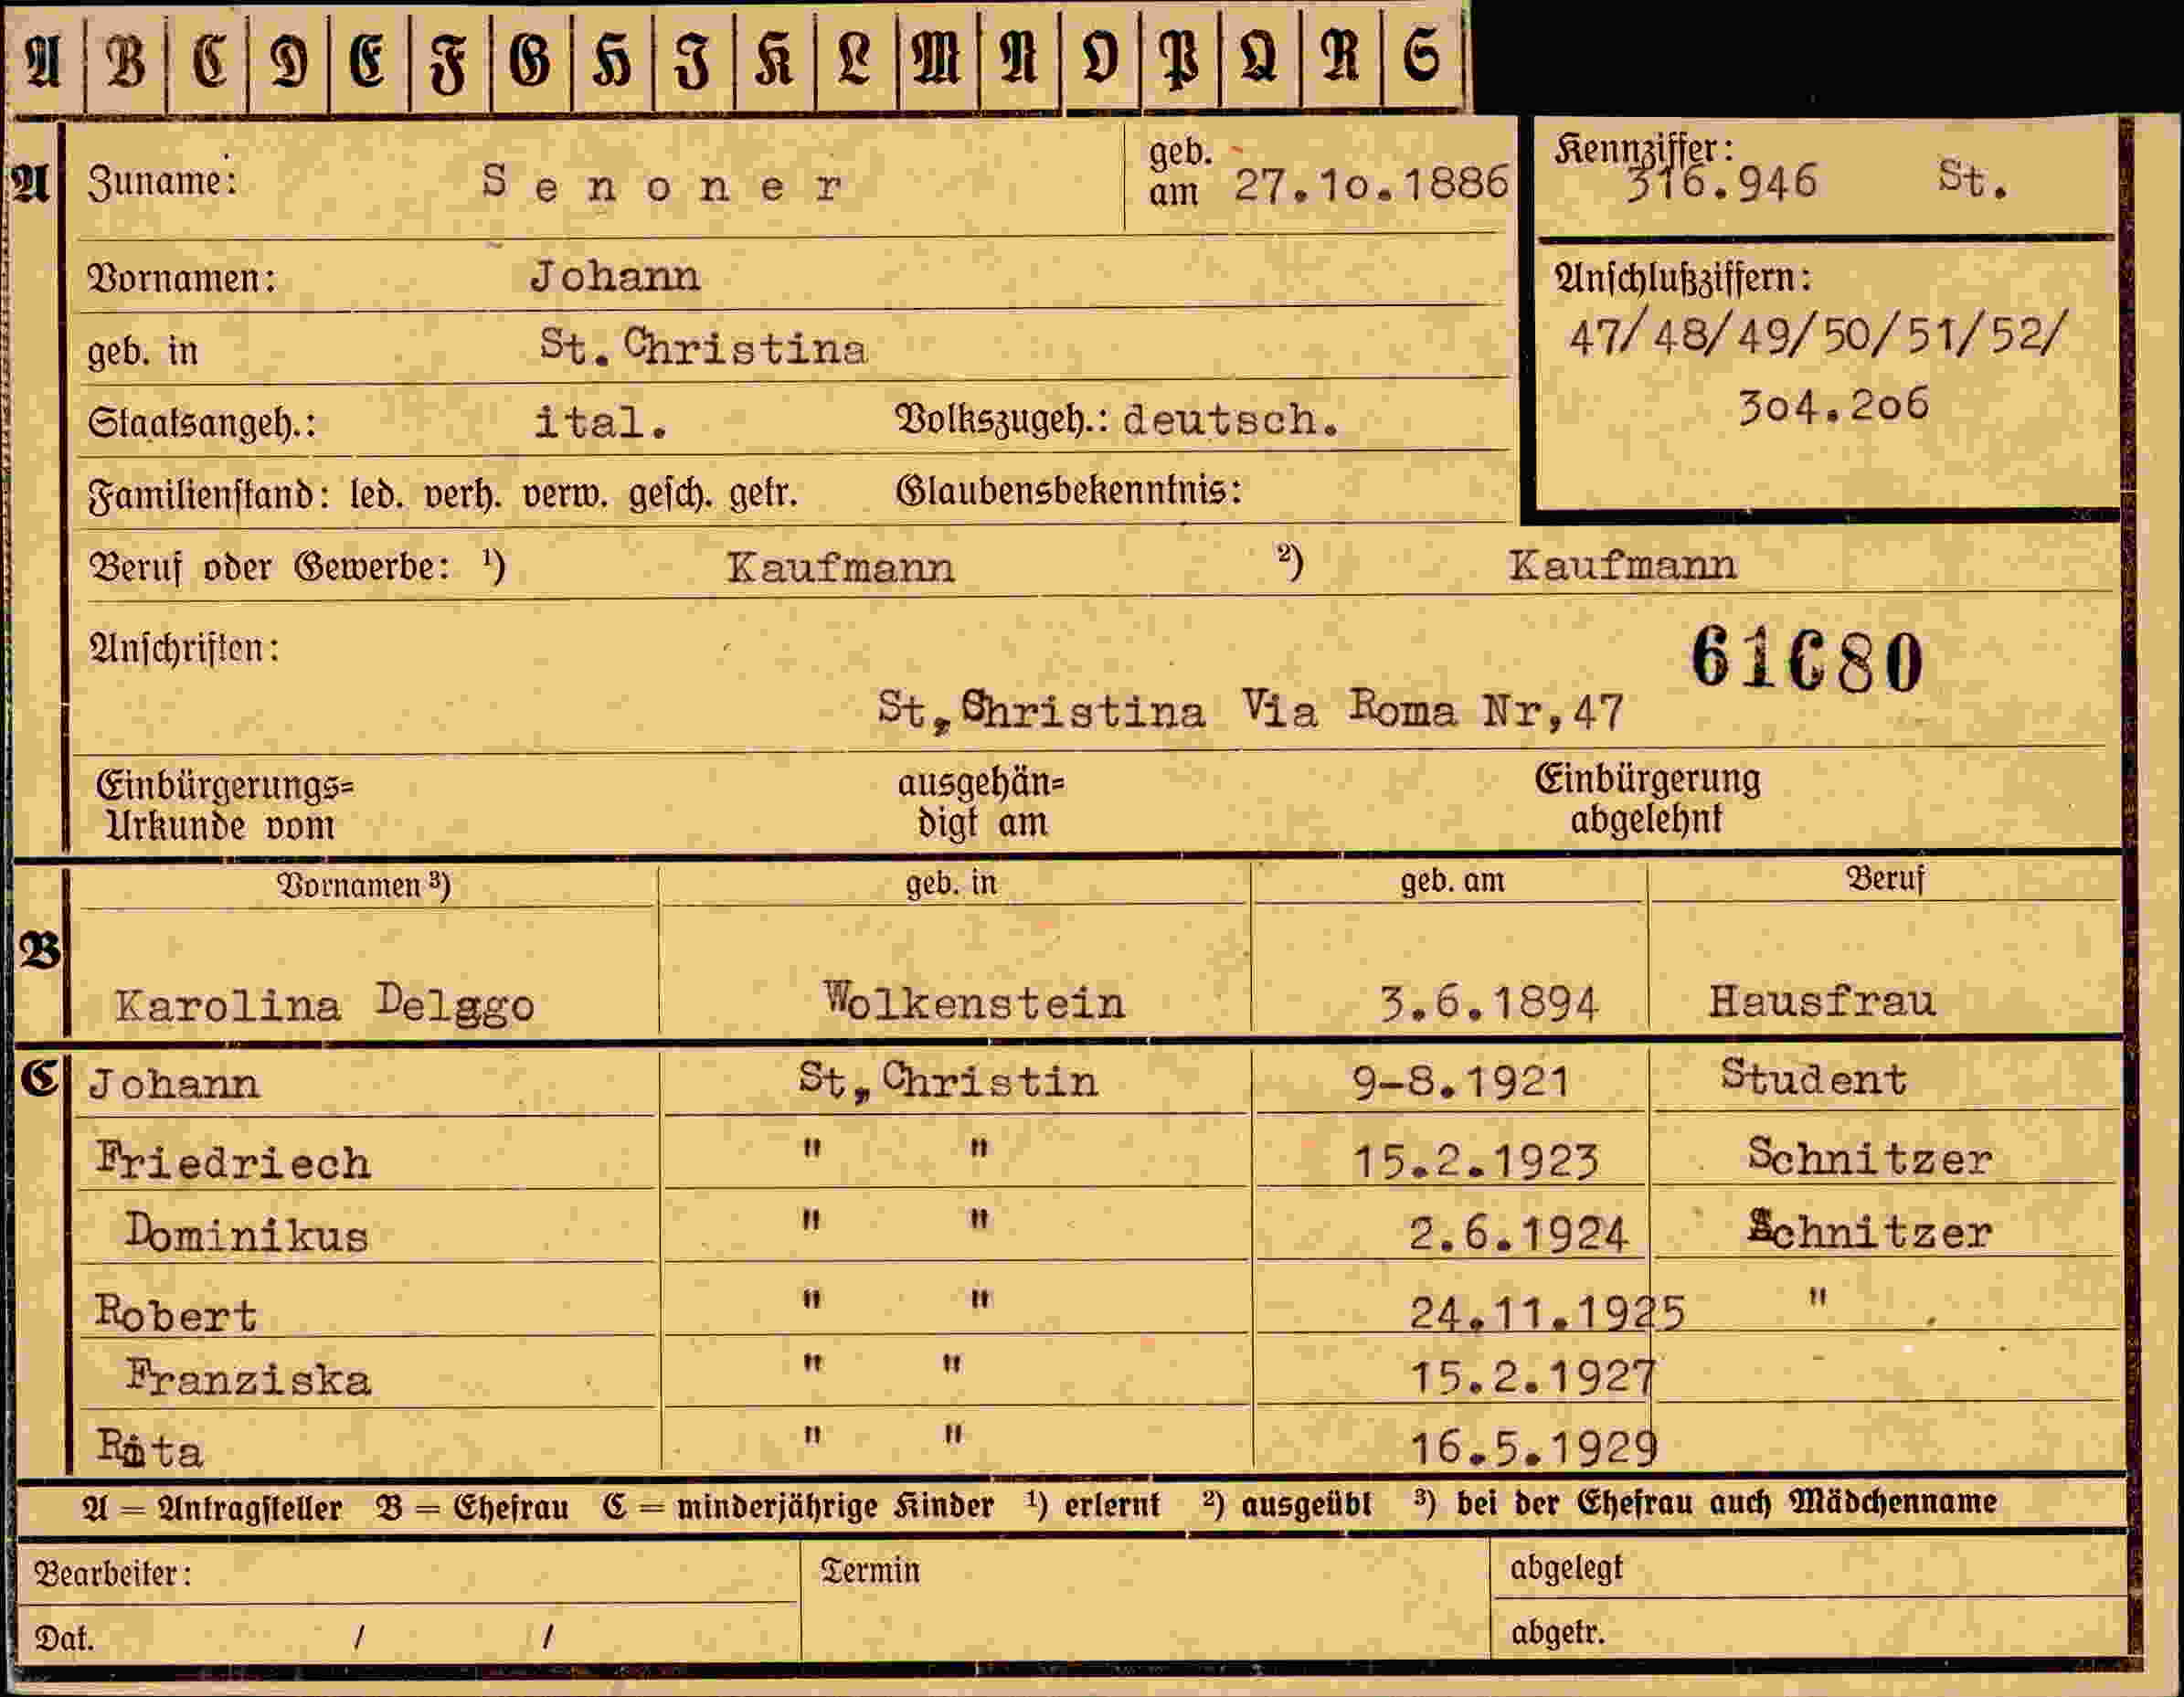 A B C D E F G H I K L M N O P Q R S
A Zuname: Senoner geb. am 27.1o.1886
Kennziffer: 316.946 St.
Vornamen: Johann
Anschlußziffern:
47/48/49/50/51/52/
3o4.2o6
geb. in St.Christina
Staatsangeh.: ital. Volkszugeh.: deutsch.
Familienstand: led. verh. verw. gesch. getr. Glaubensbekenntnis:
Beruf oder Gewerbe: ¹) Kaufmann ²) Kaufmann
Anschriften:
61680
St,Christina Via Roma Nr,47
Einbürgerungs= Urkunde vom ausgehän= digt am Einbürgerung abgelehnt
Vornamen ³) geb. in geb. am Beruf
B
Karolina Delago Wolkenstein 3.6.1894 Hausfrau
C Johann St,Christin 9-8.1921 Student
Friedriech " " 15.2.1923 Schnitzer
Dominikus " " 2.6.1924 Schnitzer
Robert " " 24.11.1925 "
Franziska " " 15.2.1927
Rita " " 16.5.1929
A = Antragsteller B = Ehefrau C = minderjährige Kinder ¹) erlernt ²) ausgeübt ³) bei der Ehefrau auch Mädchenname
Bearbeiter: Termin abgelegt
Dat. / / abgetr.